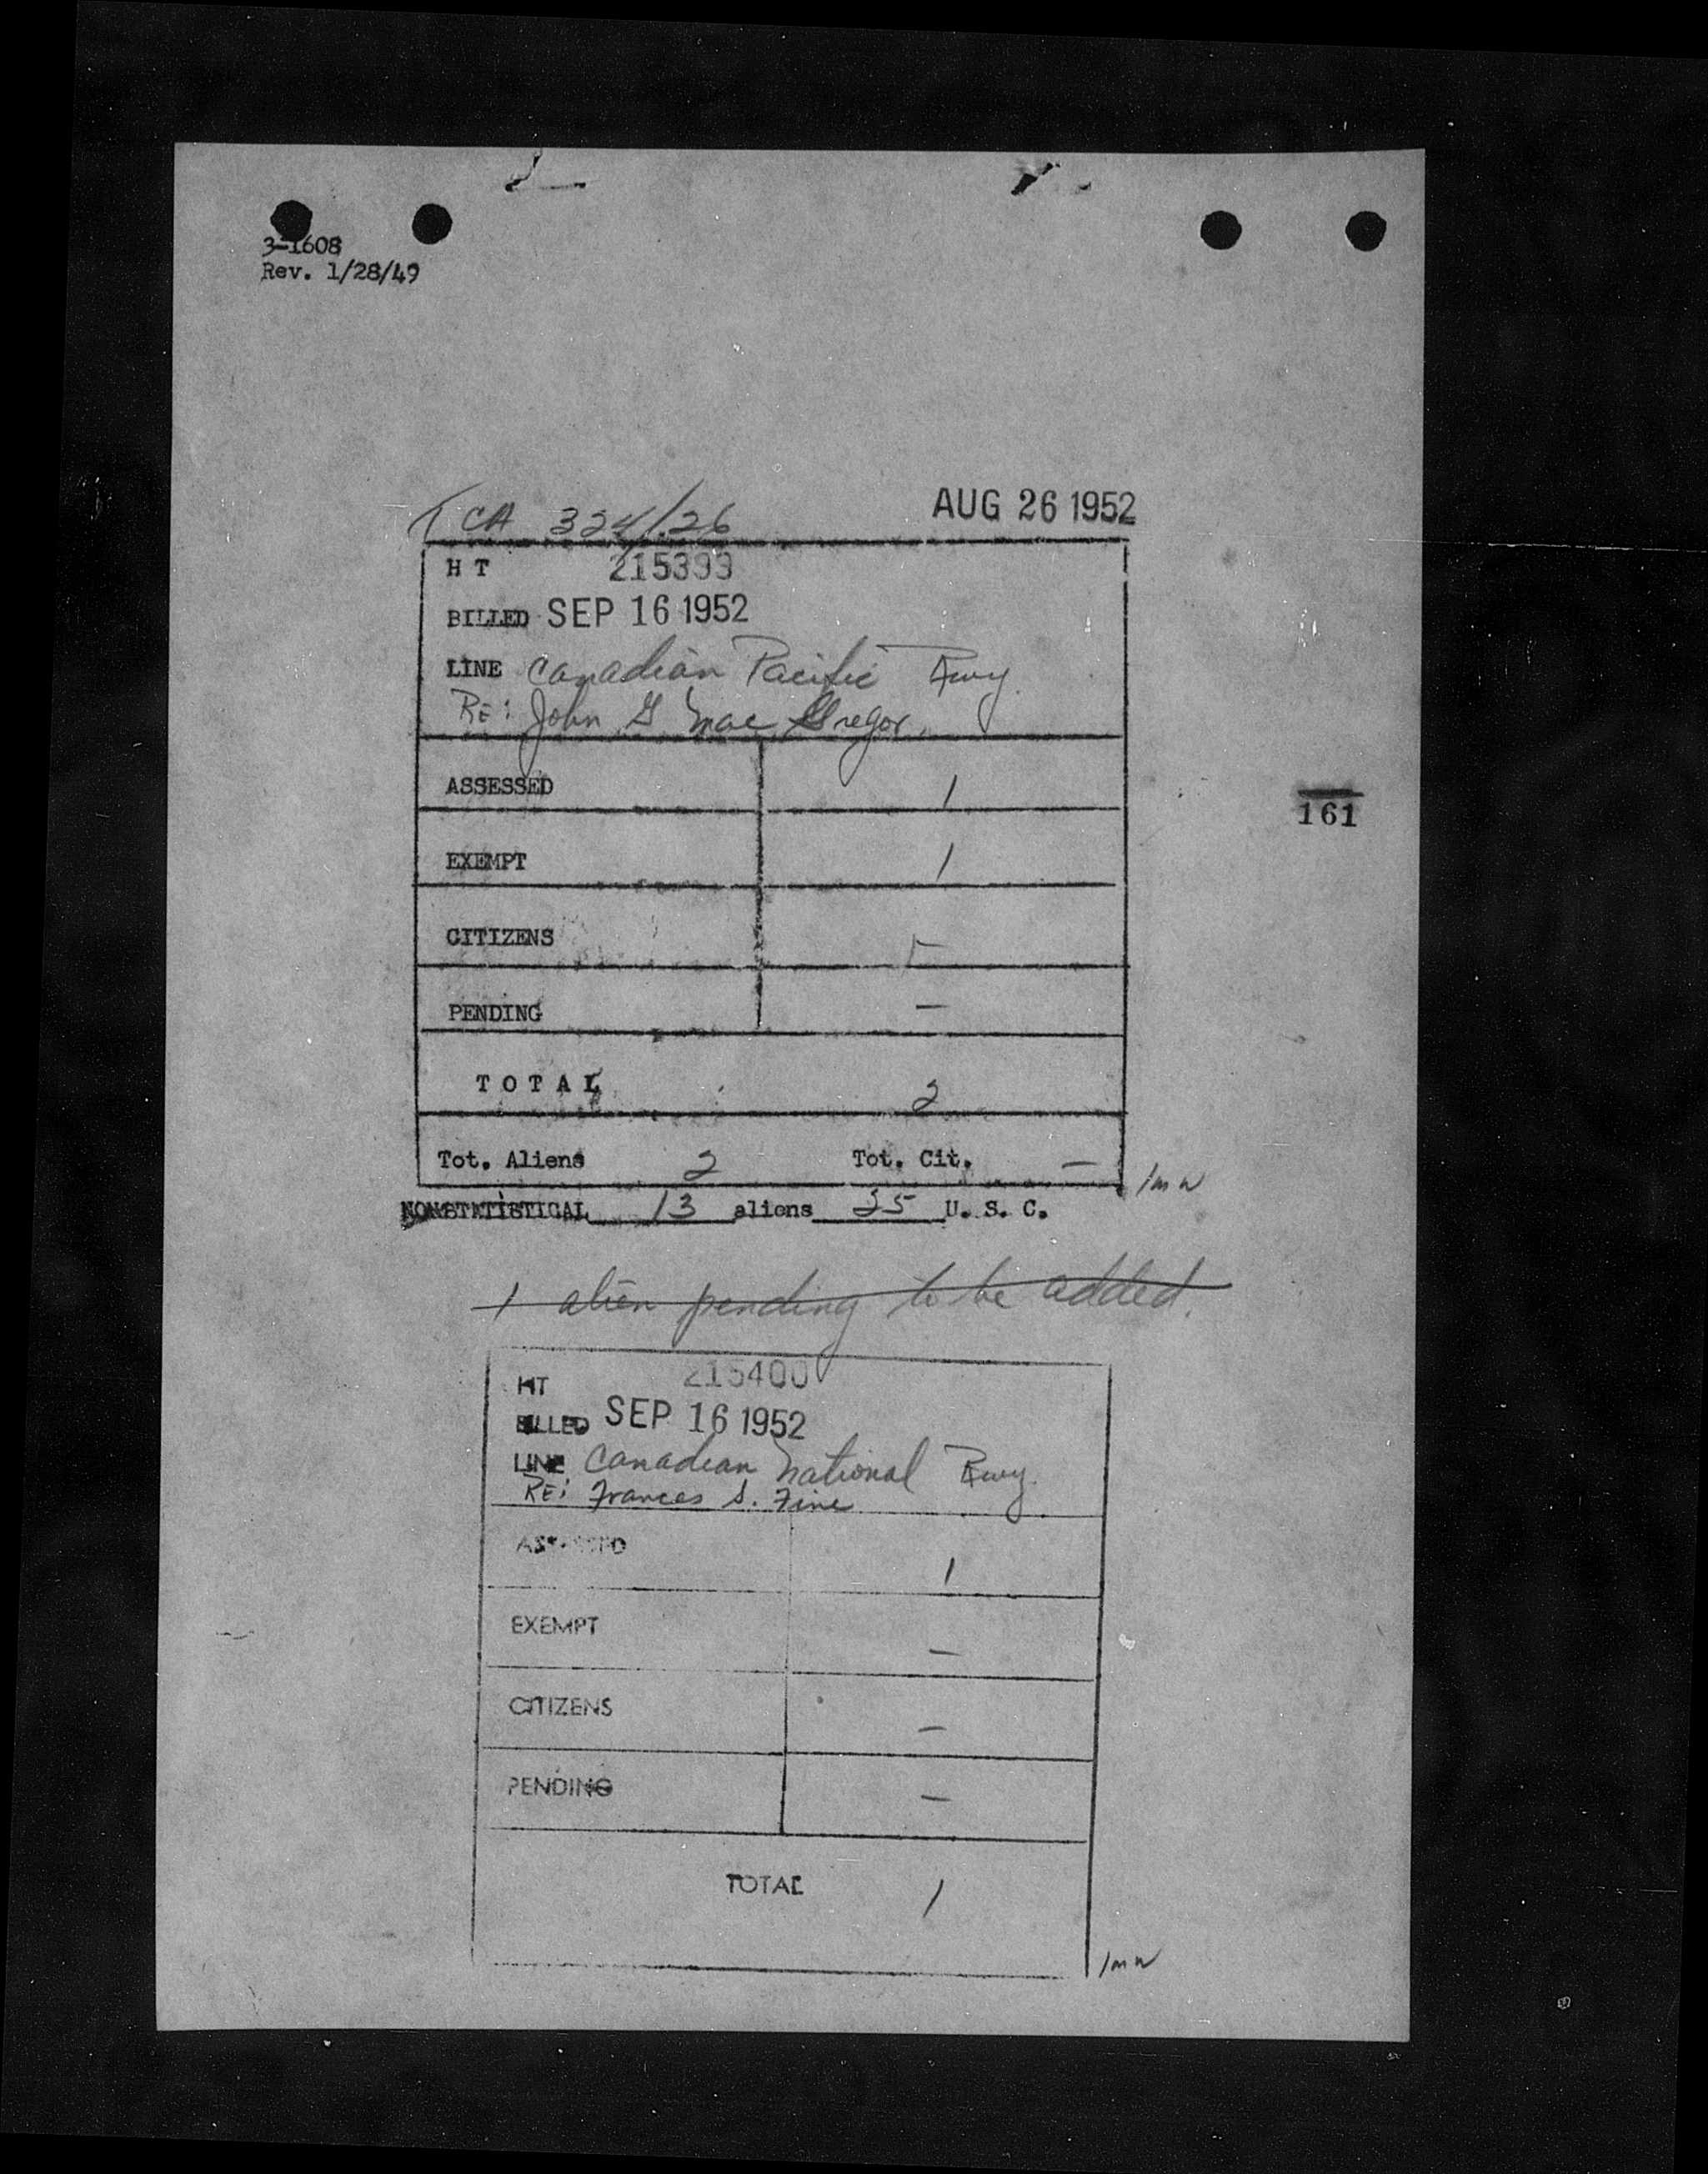 3-1608
Rev. 1/28/49
TCA 324/26 AUG 26 1952
H T 215399
BILLED SEP 16 1952
LINE Canadian Pacific Rwy.
RE: John G Mac Gregor.
ASSESSED 1
161
EXEMPT 1
CITIZENS —
PENDING —
TOTAL 2
Tot. Aliens 2 Tot. Cit. —
NONSTATISTICAL 13 aliens 25 U. S. C.
1 alien pending to be added.
HT 215400
BILLED SEP 16 1952
LINE Canadian National Rwy.
RE: Frances S. Fine
ASSESSED 1
EXEMPT —
CITIZENS —
PENDING —
TOTAL 1